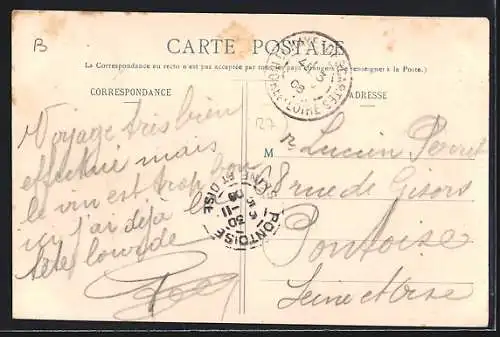 B
CARTE POSTALE
La Correspondance au recto n'est pas acceptée par tous les pays étrangers (Se renseigner à la Poste.)
CORRESPONDANCE
ADRESSE
27
Voyage très bien
effectué mais
le vin est trop bon
ici j'ai déjà la
tête lourde
M r Lucien Perret
68 rue de Gisors
Pontoise
Seine et Oise
PONTOISE
30-11
08
SEINE ET OISE